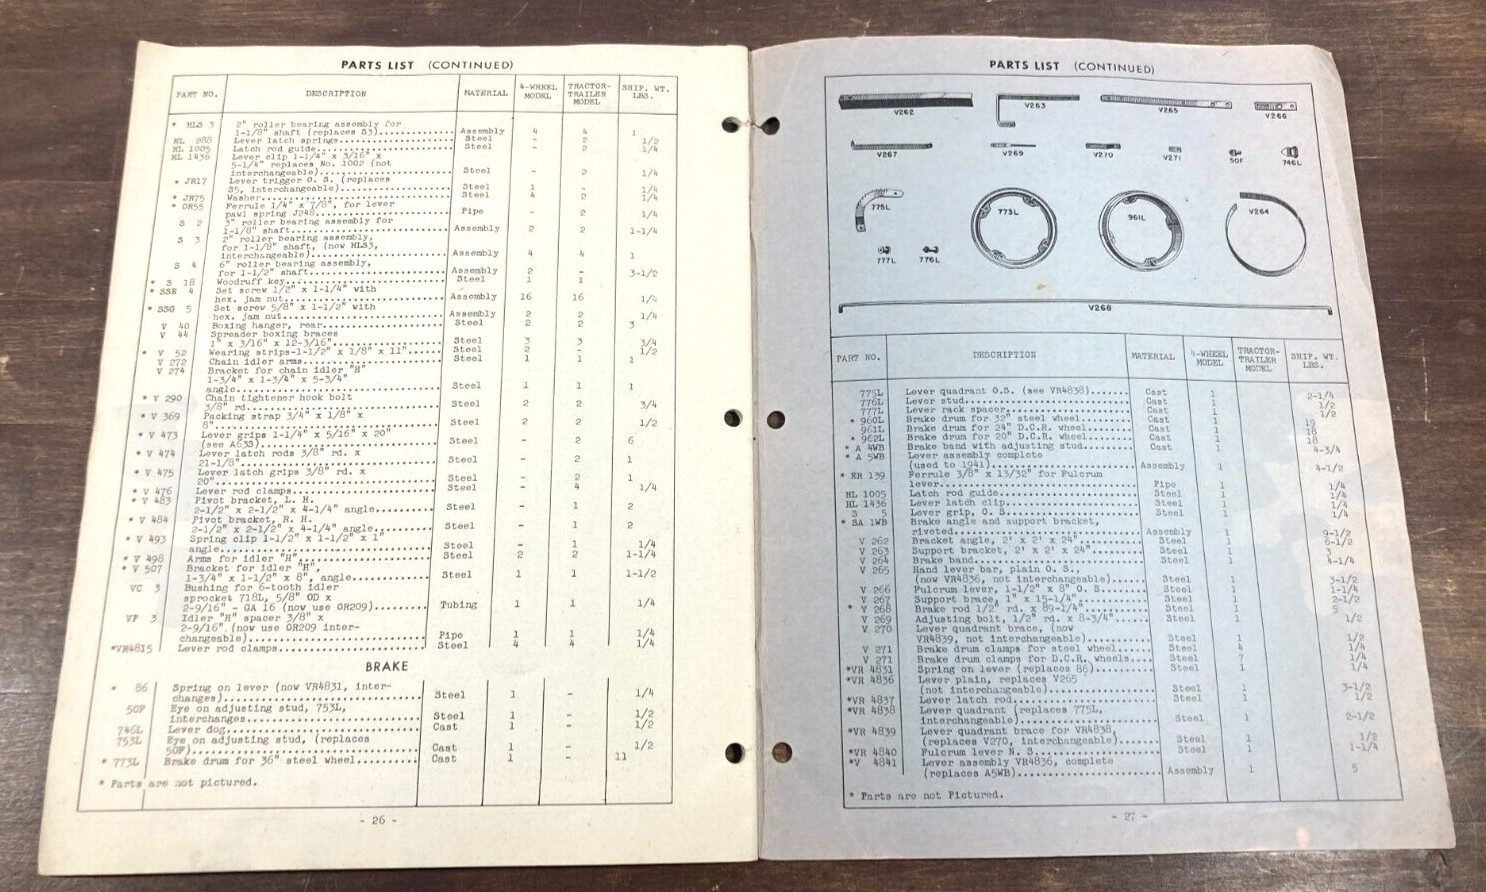 PARTS LIST (CONTINUED)
PART NO. DESCRIPTION MATERIAL 4-WHEEL MODEL TRACTOR-TRAILER MODEL SHIP. WT. LBS.
* HLS 3 2" roller bearing assembly for
1-1/8" shaft (replaces S3) Assembly 4 4 1
HL 288 Lever latch springs Steel - 2 1/2
HL 1005 Latch rod guide Steel - 2 1/4
HL 1436 Lever clip 1-1/4" x 3/16" x
5-1/4" replaces No. 1002 (not
interchangeable) Steel - 2 1/4
* JR17 Lever trigger O. S. (replaces
S5, interchangeable) Steel 1 - 1/4
* JR75 Washer Steel 4 2 1/4
* OR55 Ferrule 1/4" x 7/8", for lever
pawl spring J248 Pipe - 2 1/4
S 2 3" roller bearing assembly for
1-1/8" shaft Assembly 2 2 1-1/4
S 3 2" roller bearing assembly,
for 1-1/8" shaft, (now HLS3,
interchangeable) Assembly 4 4 1
S 4 6" roller bearing assembly,
for 1-1/2" shaft Assembly 2 - 3-1/2
* S 18 Woodruff key Steel 1 1
* SSE 4 Set screw 1/2" x 1-1/4" with
hex. jam nut Assembly 16 16 1/4
* SSG 5 Set screw 5/8" x 1-1/2" with
hex. jam nut Assembly 2 2 1/4
V 40 Boxing hanger, rear Steel 2 2 3
V 44 Spreader boxing braces
1" x 3/16" x 12-3/16" Steel 3 3 3/4
* V 52 Wearing strips-1-1/2" x 1/8" x 11" Steel 2 - 1/2
V 272 Chain idler arms Steel 1 1 1
V 274 Bracket for chain idler "H"
1-3/4" x 1-3/4" x 5-3/4"
angle Steel 1 1 1
* V 290 Chain tightener hook bolt
3/8" rd. Steel 2 2 3/4
* V 369 Packing strap 3/4" x 1/8" x
8" Steel 2 2 1/2
* V 473 Lever grips 1-1/4" x 5/16" x 20"
(see A63S) Steel - 2 6
* V 474 Lever latch rods 3/8" rd. x
21-1/8" Steel - 2 1
* V 475 Lever latch grips 3/8" rd. x
20" Steel - 2 1
* V 476 Lever rod clamps Steel - 4 1/4
* V 483 Pivot bracket, L. H.
2-1/2" x 2-1/2" x 4-1/4" angle Steel - 1 2
* V 484 Pivot bracket, R. H.
2-1/2" x 2-1/2" x 4-1/4" angle Steel - 1 2
* V 493 Spring clip 1-1/2" x 1-1/2" x 1"
angle Steel - 1 1/4
* V 498 Arms for idler "H" Steel 2 2 1-1/4
* V 507 Bracket for idler "H"
1-3/4" x 1-1/2" x 8", angle Steel 1 1 1-1/2
VC 3 Bushing for 6-tooth idler
sprocket 718L, 5/8" OD x
2-9/16" - GA 16 (now use OR209) Tubing 1 1 1/4
VP 3 Idler "H" spacer 3/8" x
2-9/16" (now use OR209 inter-
changeable) Pipe 1 1 1/4
*VR4815 Lever rod clamps Steel 4 4 1/4
BRAKE
* 86 Spring on lever (now VR4831, inter-
changes) Steel 1 - 1/4
50F Eye on adjusting stud, 753L,
interchanges Steel 1 - 1/2
746L Lever dog Cast 1 - 1/2
753L Eye on adjusting stud, (replaces
50F) Cast 1 - 1/2
* 773L Brake drum for 36" steel wheel Cast 1 - 11
* Parts are not pictured.
- 26 -
PARTS LIST (CONTINUED)
V262 V263 V265 V266
V267 V269 V270 V271 50F 746L
775L 773L 961L V264
777L 776L
V268
PART NO. DESCRIPTION MATERIAL 4-WHEEL MODEL TRACTOR-TRAILER MODEL SHIP. WT. LBS.
775L Lever quadrant O.S. (see VR4838) Cast 1 2-1/4
776L Lever stud Cast 1 1/2
777L Lever rack spacer Cast 1 1/2
* 960L Brake drum for 32" steel wheel Cast 1 19
961L Brake drum for 24" D.C.R. wheel Cast 1 18
* 962L Brake drum for 20" D.C.R. wheel Cast 1 18
* A 4WB Brake band with adjusting stud Cast 1 4-3/4
* A 5WB Lever assembly complete
(used to 1941) Assembly 1 4-1/2
* ER 139 Ferrule 3/8" x 13/32" for Fulcrum
lever Pipe 1 1/4
HL 1005 Latch rod guide Steel 1 1/4
HL 1436 Lever latch clip Steel 1 1/4
S 5 Lever grip, O. S. Steel 1 1/4
* SA 1WB Brake angle and support bracket,
riveted Assembly 1 9-1/2
V 262 Bracket angle, 2' x 2' x 24" Steel 1 6-1/2
V 263 Support bracket, 2' x 2' x 24" Steel 1 3
V 264 Brake band Steel 1 4-1/4
V 265 Hand lever bar, plain O. S.,
(now VR4836, not interchangeable) Steel 1 3-1/2
V 266 Fulcrum lever, 1-1/2" x 8" O. S. Steel 1 1-1/4
V 267 Support brace, 1" x 15-1/4" Steel 1 2-1/2
* V 268 Brake rod 1/2" rd. x 89-1/4" Steel 1 5
V 269 Adjusting bolt, 1/2" rd. x 8-3/4" Steel 1 1/2
V 270 Lever quadrant brace, (now
VR4839, not interchangeable) Steel 1 1/2
V 271 Brake drum clamps for steel wheel Steel 4 1/4
V 271 Brake drum clamps for D.C.R. wheels Steel 7 1/4
*VR 4831 Spring on lever (replaces 86) Steel 1 1/4
*VR 4836 Lever plain, replaces V265
(not interchangeable) Steel 1 3-1/2
*VR 4837 Lever latch rod Steel 1 1/2
*VR 4838 Lever quadrant (replaces 775L,
interchangeable) Steel 1 2-1/2
*VR 4839 Lever quadrant brace for VR4838,
(replaces V270, interchangeable) Steel 1 1/2
*VR 4840 Fulcrum lever N. S. Steel 1 1-1/4
*V 4841 Lever assembly VR4836, complete
(replaces A5WB) Assembly 1 5
* Parts are not Pictured.
- 27 -